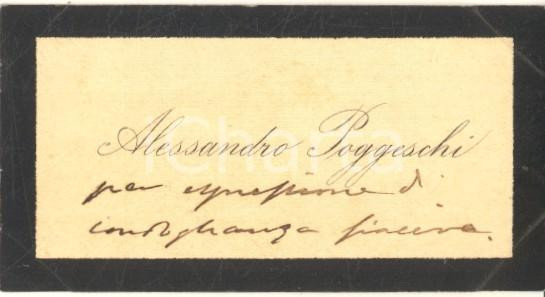 Alessandro Poggeschi
per espressione di
condoglianza sincera.
iCharta